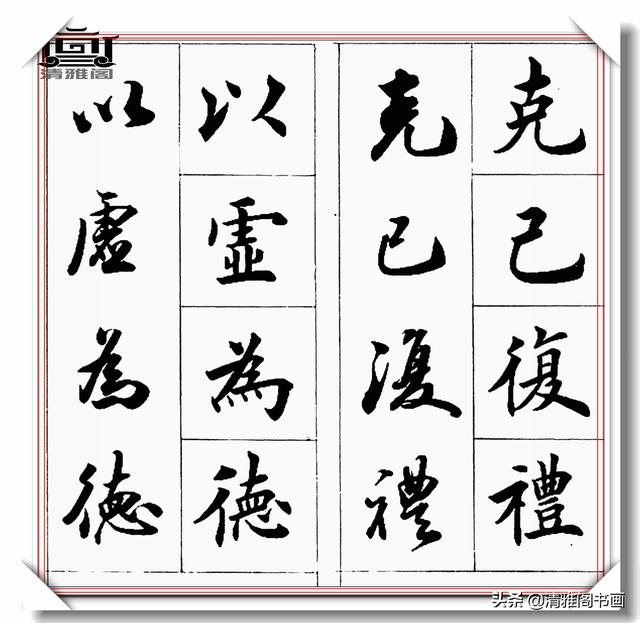 克己復禮
克己復禮
以虛為德
以虛為德
清雅阁
头条 @清雅阁书画